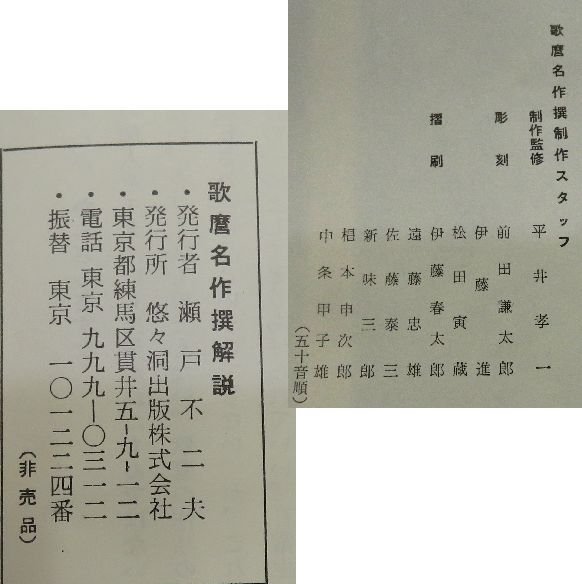 歌麿名作撰制作スタッフ
制作監修 平井孝一
彫刻 前田謙太郎
伊藤進
松田寅蔵
摺刷 伊藤春太郎
遠藤忠雄
佐藤泰三
新味三郎
椙本申次郎
中条甲子雄
(五十音順)
歌麿名作撰解説
・発行者 瀬戸不二夫
・発行所 悠々洞出版株式会社
・東京都練馬区貫井五-九-一二
・電話 東京 九九九-〇三一二
・振替 東京 一〇一二二四番
(非売品)